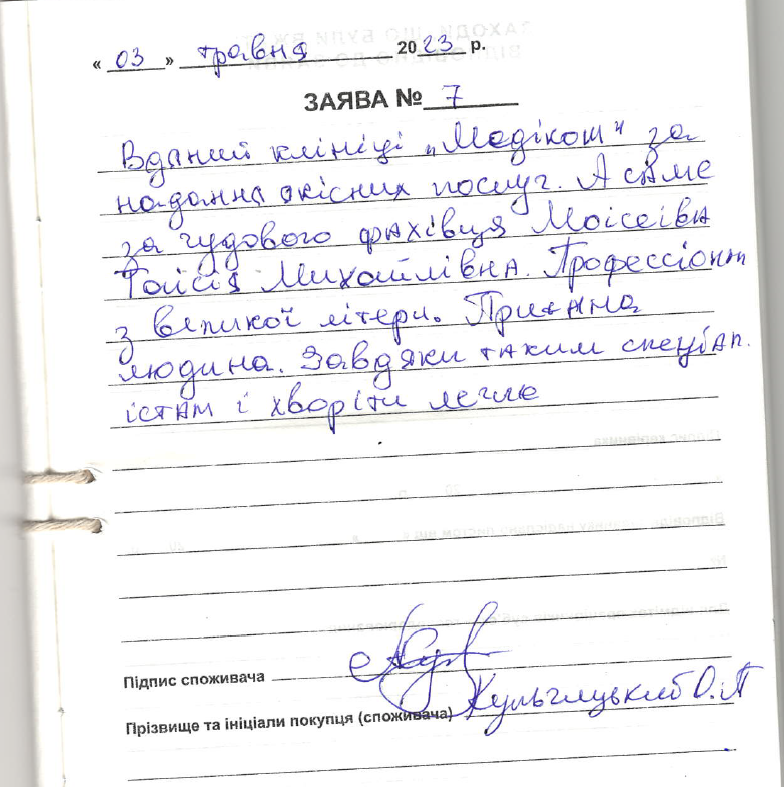 « 03 » травня 2023 р.
ЗАЯВА № 7
Вдячний клініці „Медіком" за
надання якісних послуг. А саме
за чудового фахівця Моісеівна
Таїсія Михайлівна. Профессіонал
з великої літери. Приємна
людина. Завдяки таким спеціал.
істам і хворіти легше
Підпис споживача
Прізвище та ініціали покупця (споживача) Кульчицький О.П